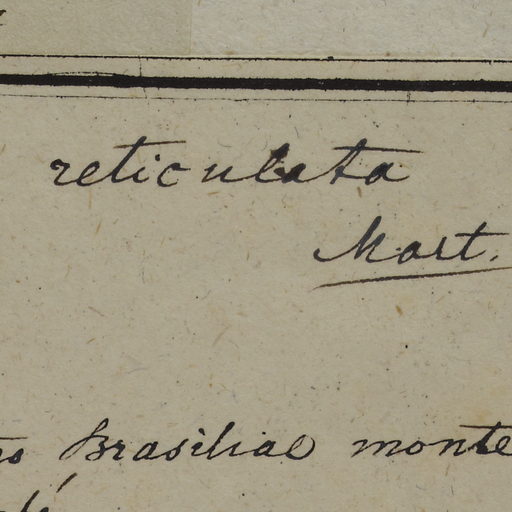 reticulata
Mart.
Brasiliae monte